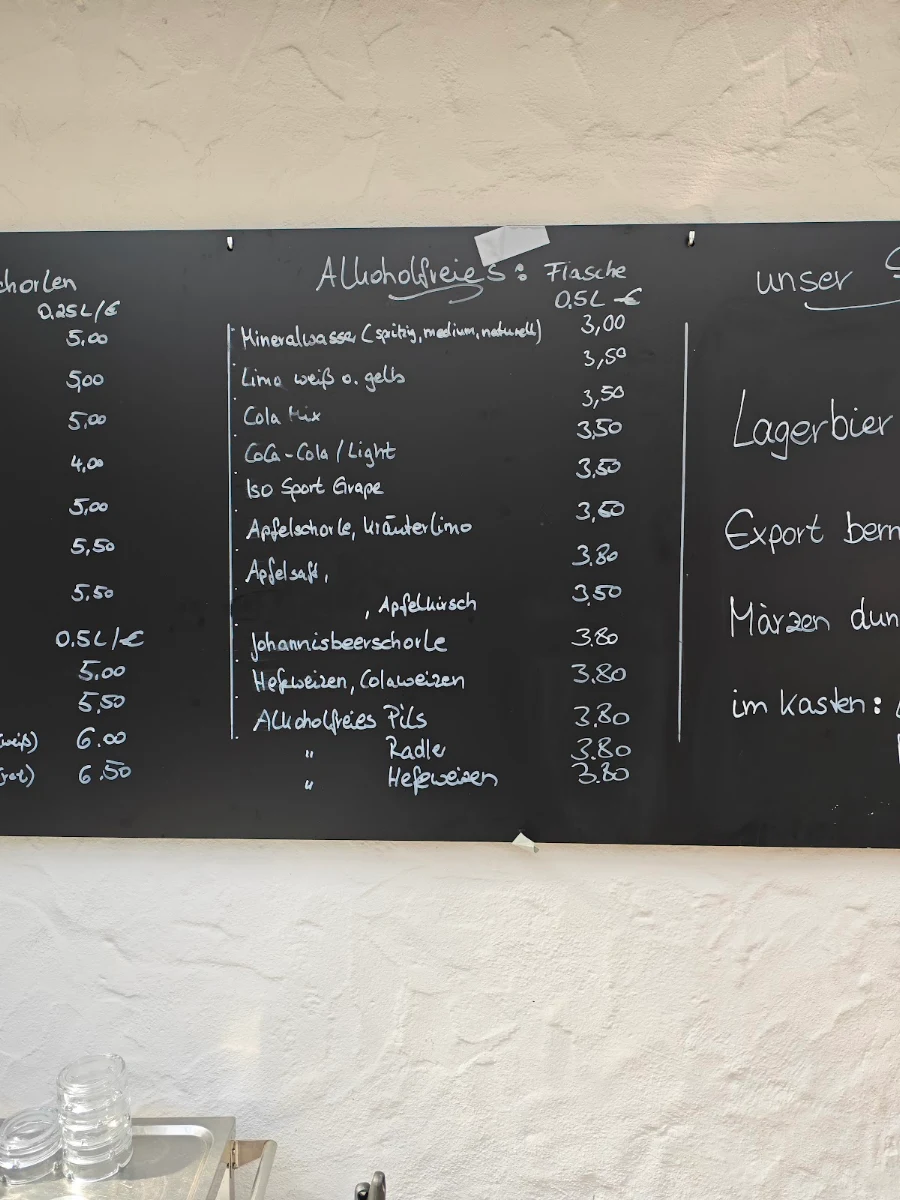 chorlen
0,25L/€
5,00
5,00
5,00
4,00
5,00
5,50
5.50
0.5L/€
5.00
5,50
weiß) 6.00
rot) 6.50
Alkoholfreies: Flasche
0,5L €
Mineralwasser (spritzig, medium, naturell) 3,00
Limo weiß o. gelb 3,50
Cola Mix 3,50
CoCa-Cola/Light 3,50
Iso Sport Grape 3,50
Apfelschorle, Kräuterlimo 3,50
Apfelsaft, 3.80
, Apfelkirsch 3,50
Johannisbeerschorle 3.80
Hefeweizen, Colaweizen 3.80
Alkoholfreies Pils 3,80
" Radler 3.80
" Hefeweizen 3.80
unser
Lagerbier
Export bern
Märzen dun
im Kasten: